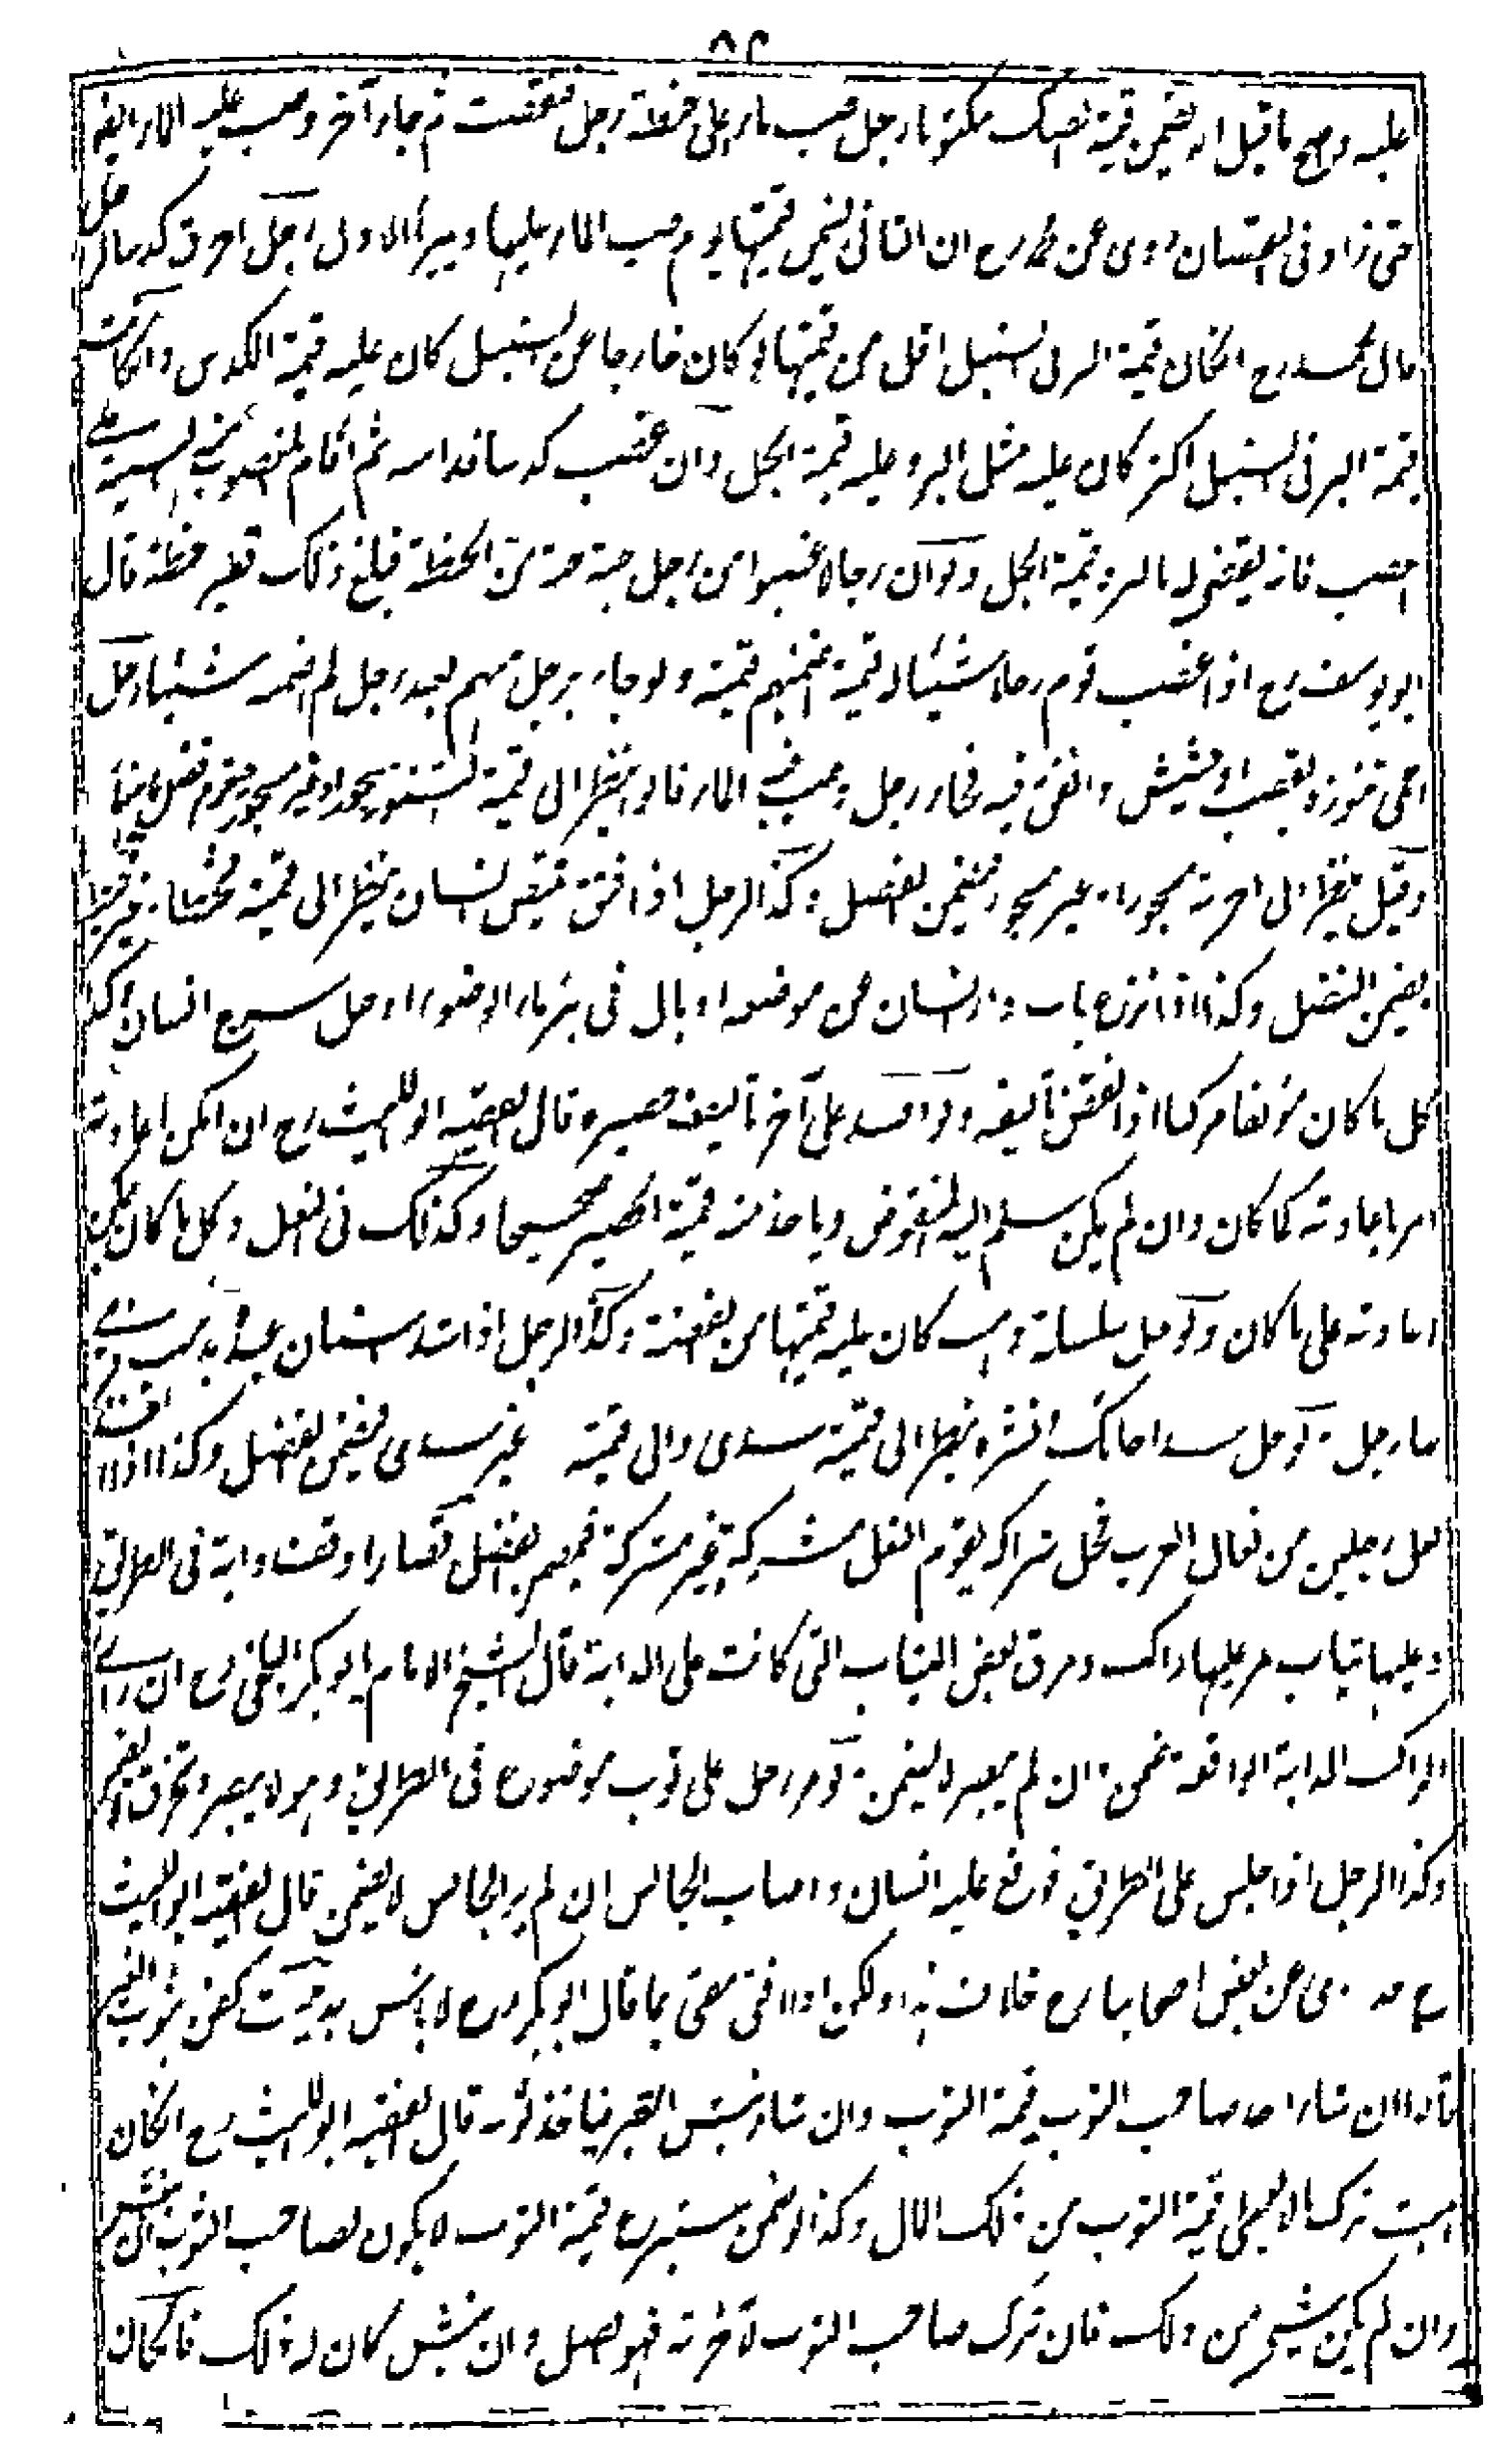 عليه وصح ما قيل انه يضمن قيمة الصك مكتوبا رجل صب ماء على حنطة رجل فنقصت ثم جاء آخر وصب عليه الماء ايضا
حتى زاد في النقصان روى عن محمد رح ان الثاني يضمن قيمتها يوم صب الماء عليها ويبرأ الاول رجل احرق كدسا لرجل
قال محمد رح ان كان قيمة البر في السنبل اقل من قيمتها لو كان خارجا عن السنبل كان عليه قيمة الكدس وان كانت
قيمة البر في السنبل اكثر كان عليه مثل البر وعليه قيمة الجل وان غصب كدسا فداسه ثم اقام المغصوب منه البينة على
الغصب فانه يقضي له بالبر وقيمة الجل ولو ان رجالا غصبوا من رجل حبة حبة من الحنطة فبلغ ذلك قفيز حنطة قال
ابو يوسف رح اذا غصب قوم رجلا شيئا له قيمة ضمنتهم قيمته ولو جاء رجل منهم بعد رجل لم اضمنه شيئا رجل
احمى تنورا بقصب او حشيش وانفق فيه فجاء رجل وصب فيه الماء قالوا ينظر الى قيمة التنور مسجورا وغير مسجور فيغرم فضل ما بينهما
وقيل ينظر الى اجرته مسجورا وغير مسجور فيضمن الفضل وكذا الرجل اذا فتق قميص انسان ينظر الى قيمته مخيطا وغير مخيط
يضمن الفضل وكذا اذا نزع باب دار انسان عن موضعه او بال في بئر ماء الوضوء او حل سرج انسان وكذا
كل ما كان مؤلفا مركبا اذا نقض تأليفه ولو افسد على آخر تأليف حصيره قال الفقيه ابو الليث رح ان امكن اعادته
امر باعادته كما كان وان لم يكن سلم اليه المنقوض وياخذ منه قيمة الحصير صحيحا وكذلك في النعل وكل ما كان يمكن
اعادته على ما كان ولو حل سلسلة ذهب كان عليه قيمتها من الفضة وكذا الرجل اذا
رجل ولو حل سدا حائك نشره ينظر الى قيمته سدى والى قيمته غير سدى فيضمن الفضل وكذا اذا
نعل رجلين من نعال العرب فحل شراكه يقوم النعل مشركة وغير مشركة فيضمن الفضل قصار اوقف دابة في الطريق
وعليها ثياب مر عليها راكب ومزق بعض الثياب التي كانت على الدابة قال الشيخ الامام ابو بكر البلخي رح ان رأى
الراكب الدابة الواقفة ضمن وان لم يبصر لا يضمن ولو مر رجل على ثوب موضوع في الطريق وهو لا يبصر وتخرق لا يضمن
وكذا الرجل اذا جلس على الطريق فوقع عليه انسان واصاب الجالس ان لم ير الجالس لا يضمن قال الفقيه ابو الليث
رح روى عن بعض اصحابنا رح خلاف هذا ولكن لو افتى مفتي بما قال ابو بكر رح لا بأس به ميت كفن بثوب الغير
قالوا ان شاء اخذ صاحب الثوب قيمة الثوب وان شاء نبش القبر فياخذ ثوبه قال الفقيه ابو الليث رح ان كان
الميت ترك مالا يعطى قيمة الثوب من ذلك المال وكذا لو ضمن متبرع قيمة الثوب لا يكون لصاحب الثوب ان ينبش
وان لم يكن شيء من ذلك فان ترك صاحب الثوب لآخرته فهو افضل وان نبش كان له ذلك فان كان